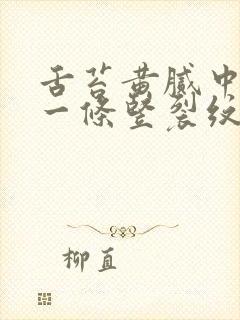 舌苔黄腻中
一条竖裂纹
柳直